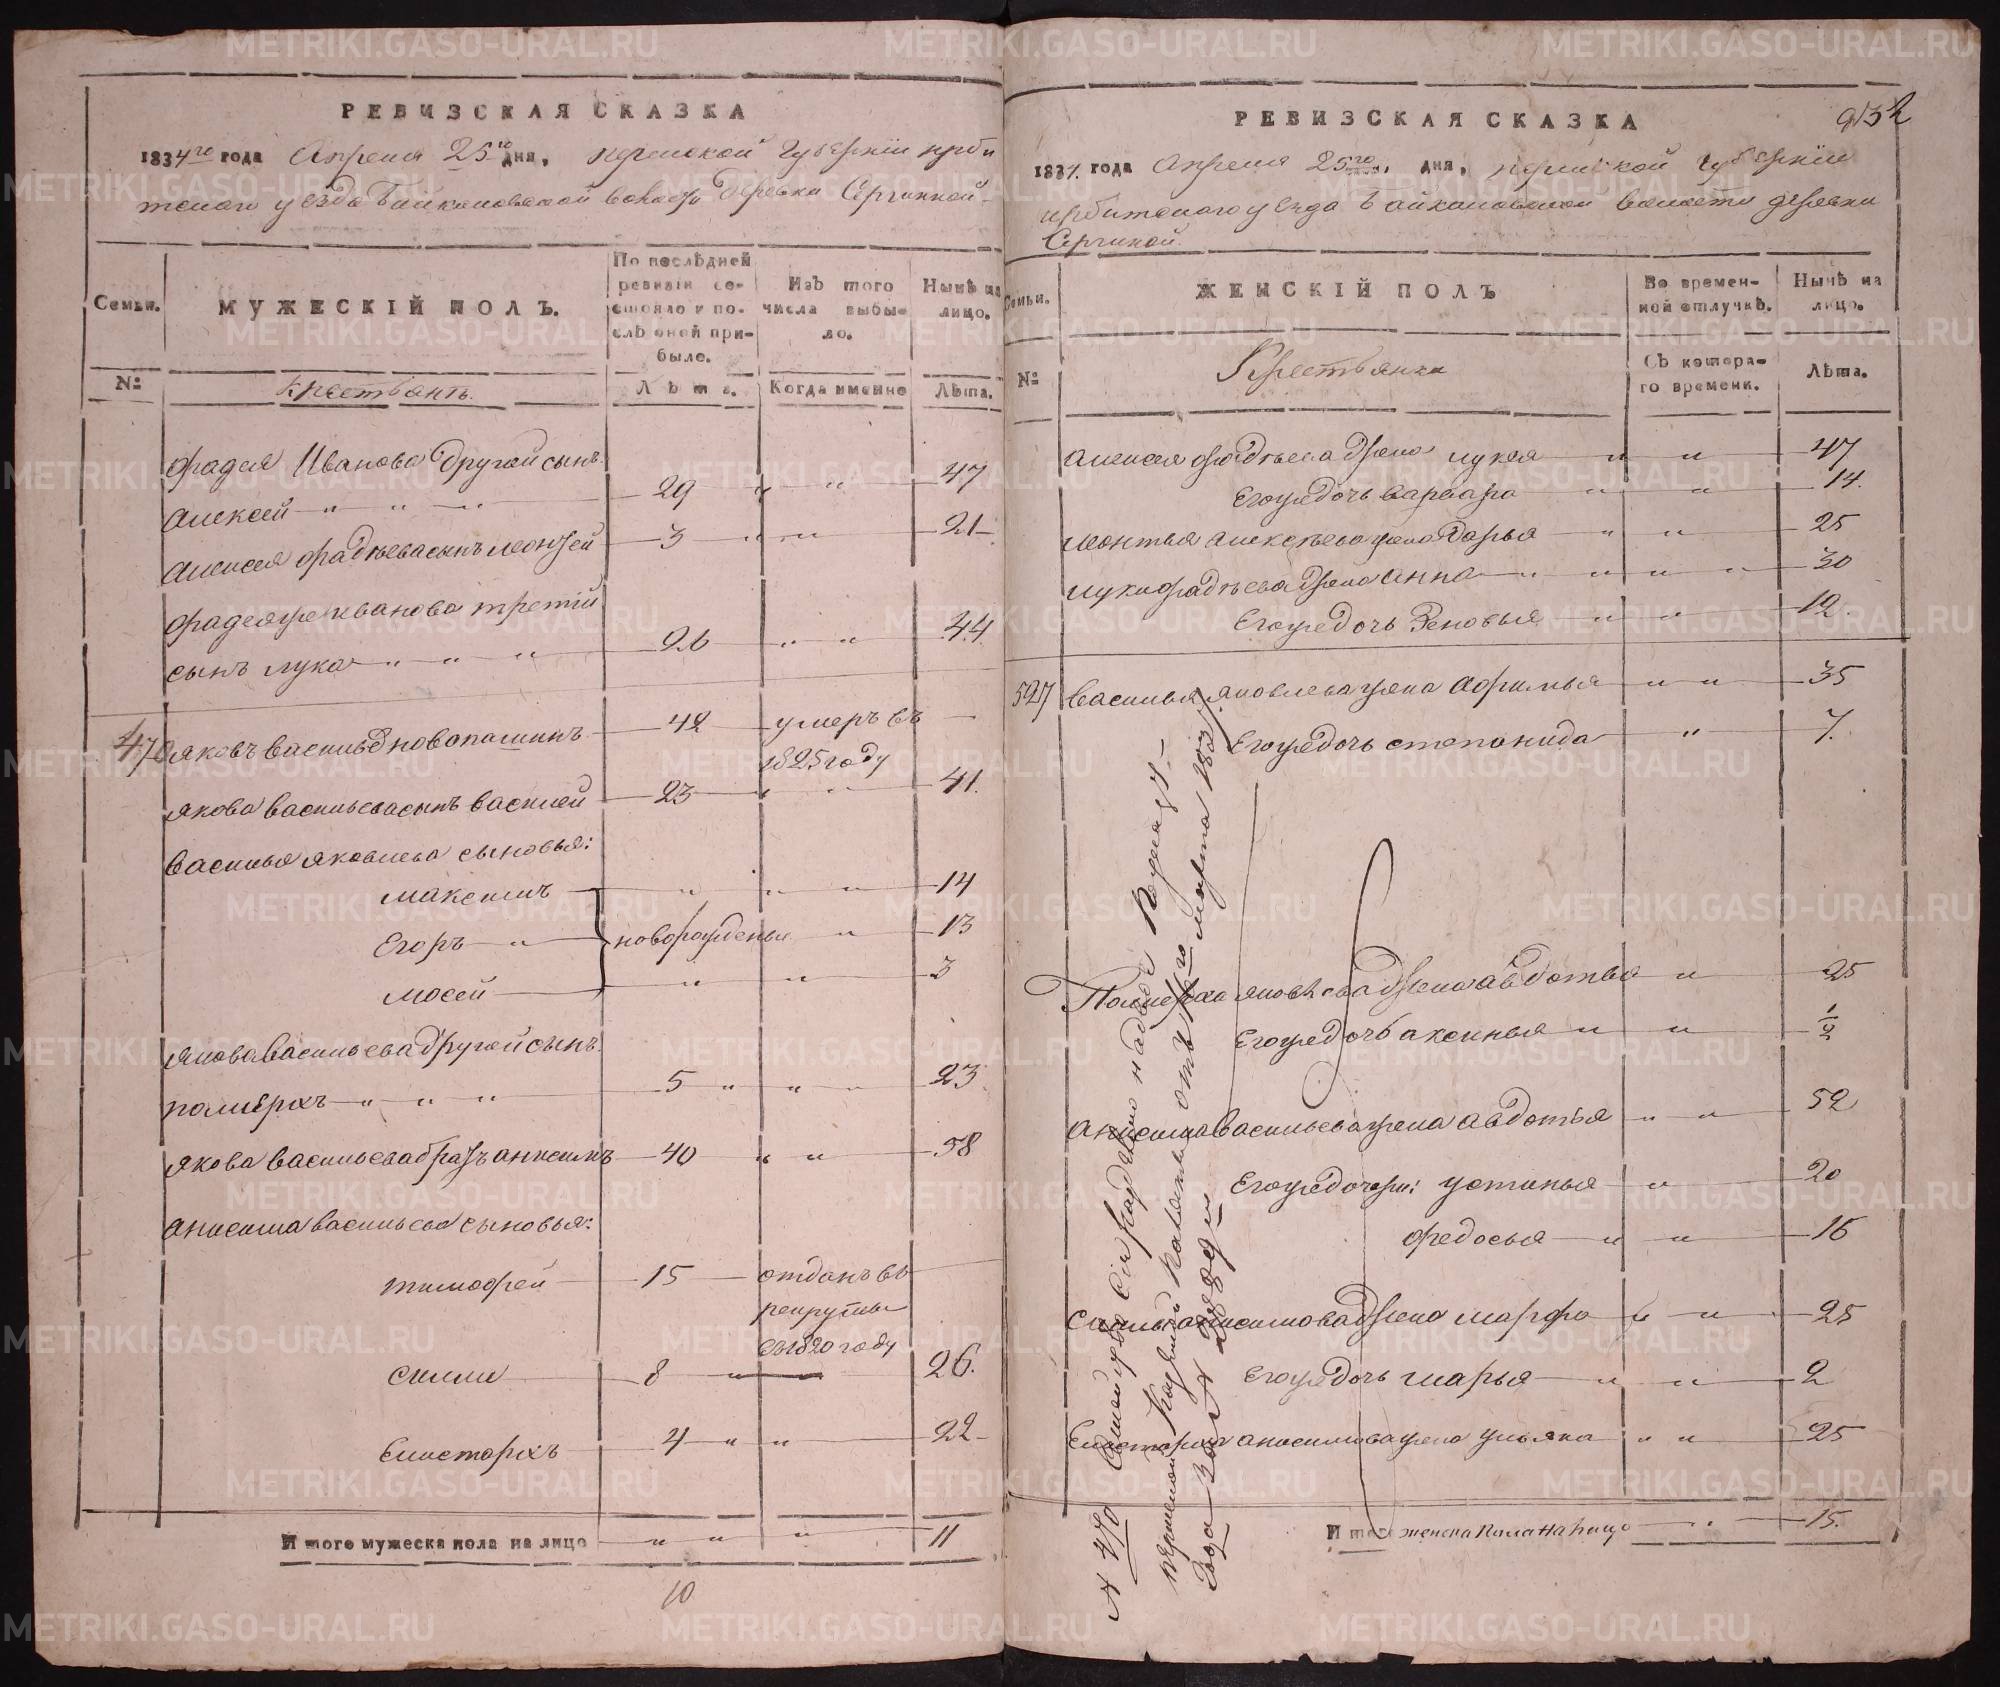 РЕВИЗСКАЯ СКАЗКА
1834го года Апреля 25го дня, пермской Губернїи ирби
тского уезда Байкаловской волости Деревни Сергиной
Семьи. МУЖЕСКІЙ ПОЛЪ. По послѣдней ревизіи состояло и послѣ оной прибыло. Изъ того числа выбыло. Нынѣ на лицо.
№ Крестьянъ. Лѣта. Когда именно Лѣта.
Фадея Иванова Другой сынъ
Алексей 29 47
Алексея Фадѣева сынъ леонтей 3 21
Фадея же Иванова третїй
сынъ лука 26 44
470 яковъ васильевъ новопашинъ 42 умеръ въ
1825 году
якова васильева сынъ василей 23 41
василья яковлева сыновья:
максимъ 14
Егоръ новорожденны 13
мосей 3
якова васильева другой сынъ
полиерхъ 5 23
якова васильева братъ анисимъ 40 58
анисима васильева сыновья:
тимофей 15 отданъ въ
рекруты
въ 1820 году
силли 8 26
Елистархъ 4 22
Итого мужеска пола на лицо 11
10
РЕВИЗСКАЯ СКАЗКА
1834 года Апреля 25го дня, пермской Губернїи
ирбитского уезда Байкаловской волости деревни
Сергиной
Семьи. ЖЕНСКІЙ ПОЛЪ Во временной отлучкѣ. Нынѣ на лицо.
№ Крестьянки Съ котораго времени. Лѣта.
алексея Фадѣева жена лукея 47
Его же дочь варвара 14
леонтья алексѣева жена Дарья 25
луки фадѣева жена анна 30
Его же дочь Зеновья 12
527 василья яковлева жена афимья 35
Его же дочь степанида 7
Полиерха яковлева жена авдотья 25
Его же дочь аксинья 1/2
анисима васильева жена авдотья 52
Его же дочери: устинья 20
федосья 16
анисимова жена марфа 25
Его же дочь марья 2
Елистарха анисимова жена ульяна 25
Итого женска пола на лицо 15
№ 470
пермской казенной палаты отъ марта
года за №